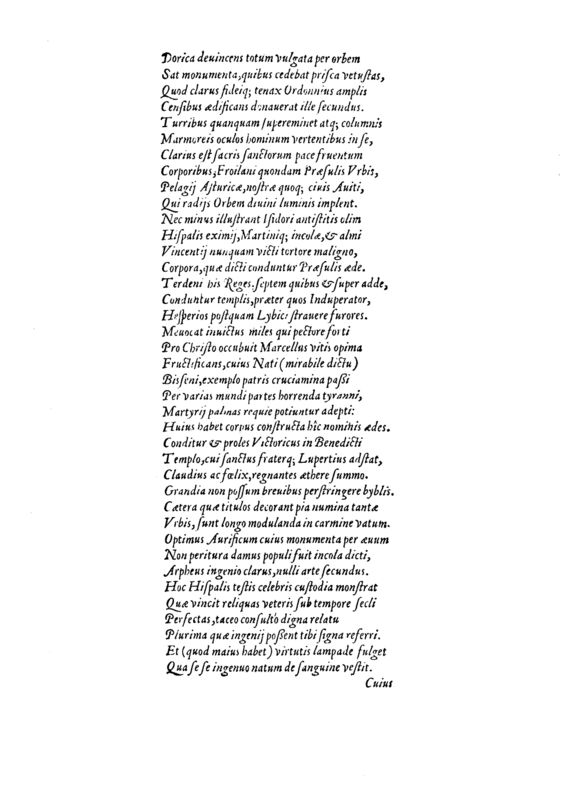 Dorica deuincens totum vulgata per orbem
Sat monumenta, quibus cedebat prisca vetustas,
Quod clarus fideiq; tenax Ordonnius amplis
Censibus ædificans donauerat ille secundus.
Turribus quanquam supereminet atq; columnis
Marmoreis oculos hominum vertentibus in se,
Clarius est sacris sanctorum pace fruentum
Corporibus, Froilani quondam Præsulis Vrbis,
Pelagij Asturicæ, nostræ quoq; ciuis Auiti,
Qui radijs Orbem diuini luminis implent.
Nec minus illustrant Isidori antistitis olim
Hispalis eximij, Martiniq; incolæ, & almi
Vincentij nunquam victi tortore maligno,
Corpora, quæ dicti conduntur Præsulis æde.
Terdeni his Reges. septem quibus & super adde,
Conduntur templis, præter quos Induperator,
Hesperios postquam Lybici strauere furores.
Meuocat inuictus miles qui pectore forti
Pro Christo occubuit Marcellus vitis opima
Fructificans, cuius Nati (mirabile dictu)
Bisseni, exemplo patris cruciamina passi
Per varias mundi partes horrenda tyranni,
Martyrij palmas requie potiuntur adepti:
Huius habet corpus constructa hic nominis ædes.
Conditur & proles Victoricus in Benedicti
Templo, cui sanctus fraterq; Lupertius adstat,
Claudius ac fœlix, regnantes æthere summo.
Grandia non possum breuibus perstringere byblis.
Cætera quæ titulos decorant pia numina tantæ
Vrbis, sunt longo modulanda in carmine vatum.
Optimus Aurificum cuius monumenta per æuum
Non peritura damus populi fuit incola dicti,
Arpheus ingenio clarus, nulli arte secundus.
Hoc Hispalis testis celebris custodia monstrat
Quæ vincit reliquas veteris sub tempore secli
Perfectas, taceo consulto digna relatu
Plurima quæ ingenij possent tibi signa referri.
Et (quod maius habet) virtutis lampade fulget
Qua se se ingenuo natum de sanguine vestit.
Cuius